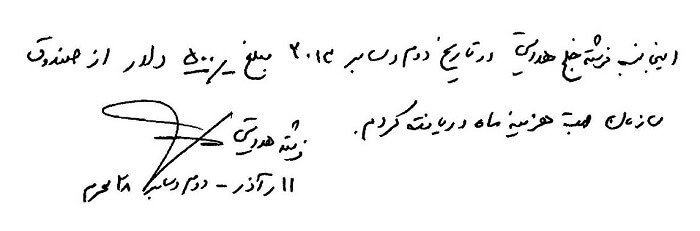 اینجانب فرشته خلج هدایتی در تاریخ دوم دسامبر ۲۰۱۳ مبلغ ۵۰۰/- دلار از صندوق
سازمان جهت هزینه ماه دریافت کردم.
فرشته هدایتی
۱۱ آذر - دوم دسامبر ۲۸ محرم